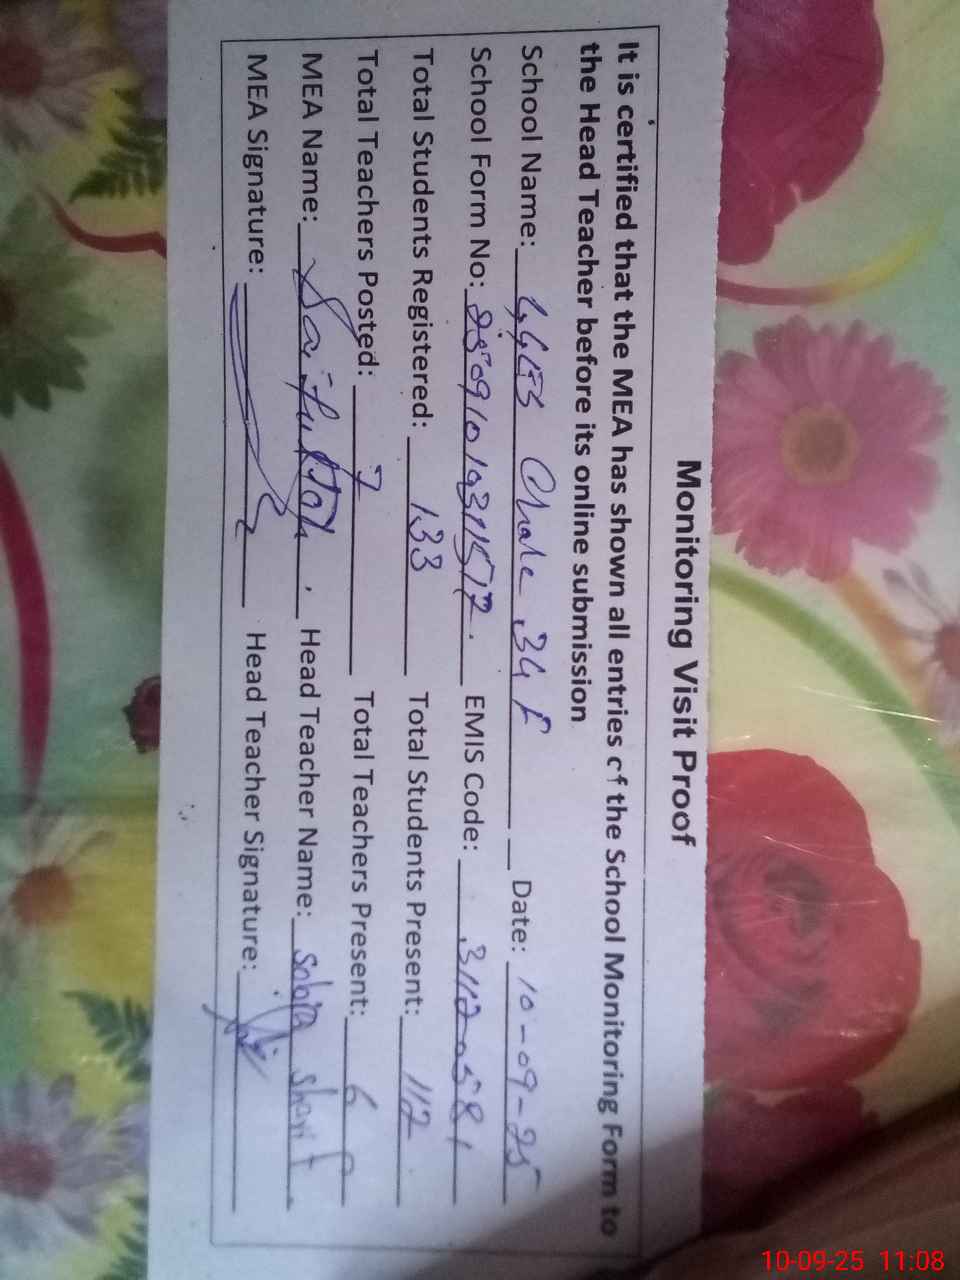 Monitoring Visit Proof
It is certified that the MEA has shown all entries of the School Monitoring Form to
the Head Teacher before its online submission
School Name: Chak 34 F Date: 10-09-25
School Form No: EMIS Code: 31120581
Total Students Registered: 133 Total Students Present: 112
Total Teachers Posted: 7 Total Teachers Present: 6
MEA Name: Saifullah Head Teacher Name: Sobia Sharif
MEA Signature: Head Teacher Signature:
10-09-25 11:08